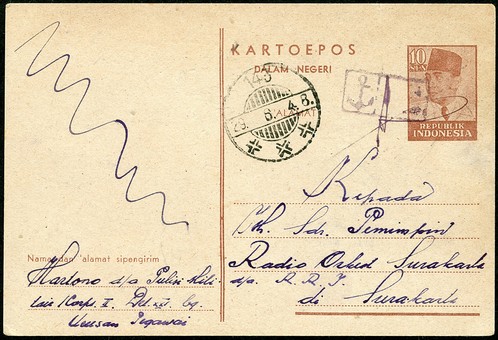 KARTOEPOS
DALAM NEGERI
10
SEN
REPUBLIK
INDONESIA
29. 6. 4.8.
ALAMAT
Kepada
Yth. Sdr. Pemimpin
Radio Orkest Surakarta
d/a. R. R. I.
di Surakarta
Nama dan alamat sipengirim
Hartono d/a Polisi Mili-
tair /Corps. II. Det. bg.
Urusan Pegawai